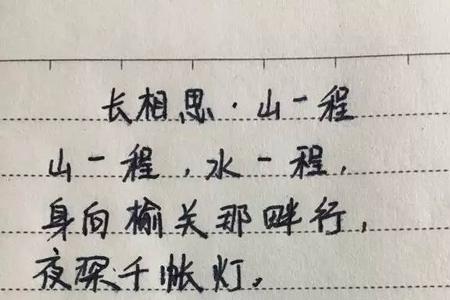 长相思·山一程
山一程,水一程,
身向榆关那畔行,
夜深千帐灯。